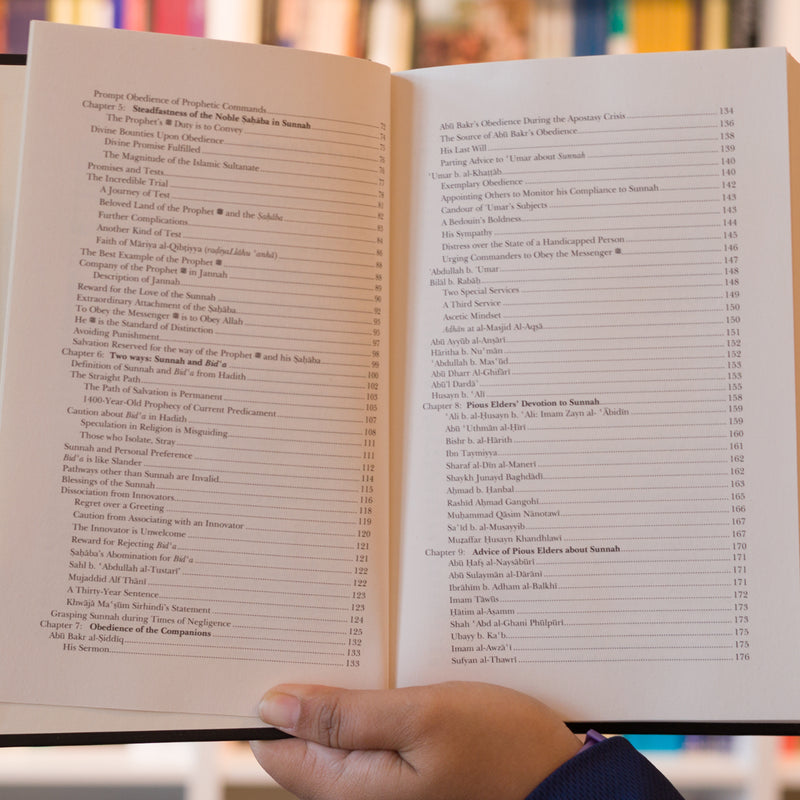 Prompt Obedience of Prophetic Commands 72
Chapter 5: Steadfastness of the Noble Ṣaḥāba in Sunnah 74
The Prophet's ﷺ Duty is to Convey 75
Divine Bounties Upon Obedience 76
Divine Promise Fulfilled 76
The Magnitude of the Islamic Sultanate 77
Promises and Tests 78
The Incredible Trial 81
A Journey of Test 82
Beloved Land of the Prophet ﷺ and the Ṣaḥāba 83
Further Complications 84
Another Kind of Test 86
Faith of Māriya al-Qibṭiyya (raḍiyaLlāhu ʿanhā) 88
The Best Example of the Prophet ﷺ 88
Company of the Prophet ﷺ in Jannah 89
Description of Jannah 90
Reward for the Love of the Sunnah 92
Extraordinary Attachment of the Ṣaḥāba 95
To Obey the Messenger ﷺ is to Obey Allah 95
He ﷺ is the Standard of Distinction 97
Avoiding Punishment 98
Salvation Reserved for the way of the Prophet ﷺ and his Ṣaḥāba 99
Chapter 6: Two ways: Sunnah and Bidʿa 100
Definition of Sunnah and Bidʿa from Hadith 102
The Straight Path 103
The Path of Salvation is Permanent 105
1400-Year-Old Prophecy of Current Predicament 107
Caution about Bidʿa in Hadith 108
Speculation in Religion is Misguiding 111
Those who Isolate, Stray 111
Sunnah and Personal Preference 112
Bidʿa is like Slander 114
Pathways other than Sunnah are Invalid 115
Blessings of the Sunnah 116
Dissociation from Innovators 118
Regret over a Greeting 119
Caution from Associating with an Innovator 120
The Innovator is Unwelcome 121
Reward for Rejecting Bidʿa 121
Ṣaḥāba's Abomination for Bidʿa 122
Sahl b. ʿAbdullah al-Tustarī 122
Mujaddid Alf Thānī 123
A Thirty-Year Sentence 123
Khwājā Maʿṣūm Sirhindi's Statement 124
Grasping Sunnah during Times of Negligence 125
Chapter 7: Obedience of the Companions 132
Abū Bakr al-Ṣiddīq 133
His Sermon 133
Abū Bakr's Obedience During the Apostasy Crisis 134
The Source of Abū Bakr's Obedience 136
His Last Will 138
Parting Advice to ʿUmar about Sunnah 139
ʿUmar b. al-Khaṭṭāb 140
Exemplary Obedience 140
Appointing Others to Monitor his Compliance to Sunnah 142
Candour of ʿUmar's Subjects 143
A Bedouin's Boldness 143
His Sympathy 144
Distress over the State of a Handicapped Person 145
Urging Commanders to Obey the Messenger ﷺ 146
ʿAbdullah b. ʿUmar 147
Bilāl b. Rabāḥ 148
Two Special Services 148
A Third Service 149
Ascetic Mindset 150
Adhān at al-Masjid Al-Aqsā 150
Abū Ayyūb al-Anṣārī 151
Ḥāritha b. Nuʿmān 152
ʿAbdullah b. Masʿūd 152
Abū Dharr Al-Ghifārī 153
Abū'l Dardāʾ 153
Ḥusayn b. ʿAlī 155
Chapter 8: Pious Elders' Devotion to Sunnah 158
ʿAli b. al-Ḥusayn b. ʿAli: Imam Zayn al-ʿĀbidīn 159
Abū ʿUthmān al-Ḥīrī 159
Bishr b. al-Ḥārith 160
Ibn Taymiyya 161
Sharaf al-Dīn al-Manerī 162
Shaykh Junayd Baghdādī 162
Aḥmad b. Ḥanbal 163
Rashīd Aḥmad Gangohī 165
Muḥammad Qāsim Nānotawī 166
Saʿīd b. al-Musayyib 167
Muzaffar Ḥusayn Khandhlawī 167
Chapter 9: Advice of Pious Elders about Sunnah 170
Abū Ḥafṣ al-Naysābūrī 171
Abū Sulaymān al-Dārānī 171
Ibrāhīm b. Adham al-Balkhī 171
Imam Tāwūs 172
Ḥātim al-Asamm 173
Shah ʿAbd al-Ghani Phūlpūrī 173
Ubayy b. Kaʿb 175
Imam al-Awzāʿī 175
Sufyan al-Thawrī 176